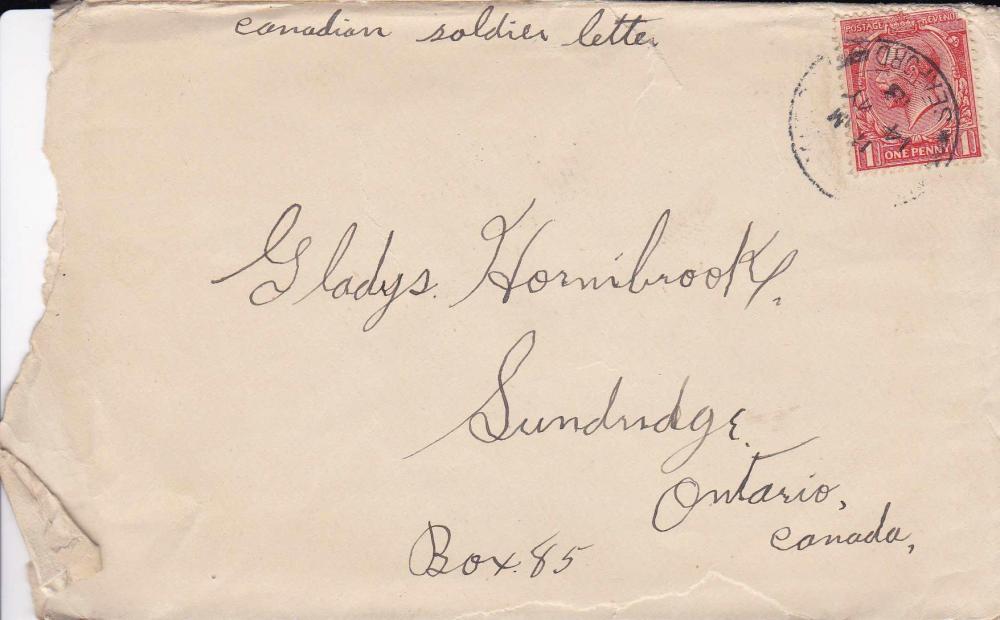 canadian soldier letter
POSTAGE REVENUE
SEAFORD
14 MY
1 ONE PENNY 1
Gladys. Hornibrook,
Sundridge.
Ontario,
canada,
Box.85